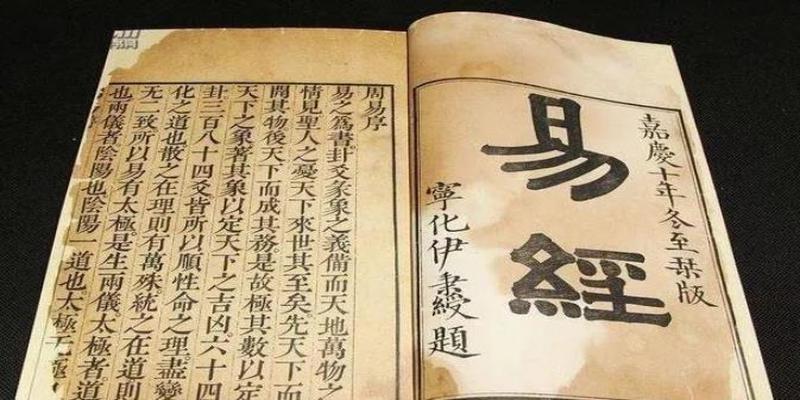 嘉慶十年冬至栞版
易經
寧化伊秉綬題
周易序
易之爲書卦爻彖象之義備而天地萬物
情見聖人之憂天下來世其至矣先天下而
開其物後天下而成其務是故極其數以定
天下之象著其象以定天下之吉凶六十四
卦三百八十四爻皆所以順性命之理盡變
化之道也散之在理則有萬殊統之在道則
无二致所以易有太極是生兩儀太極者道
也兩儀者陰陽也陰陽一道也太極无極